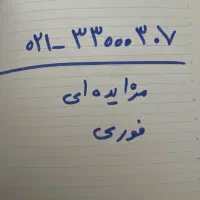 ۰۲۱-۳۳۰۰۰۳۰۷
مزایده ای
فوری